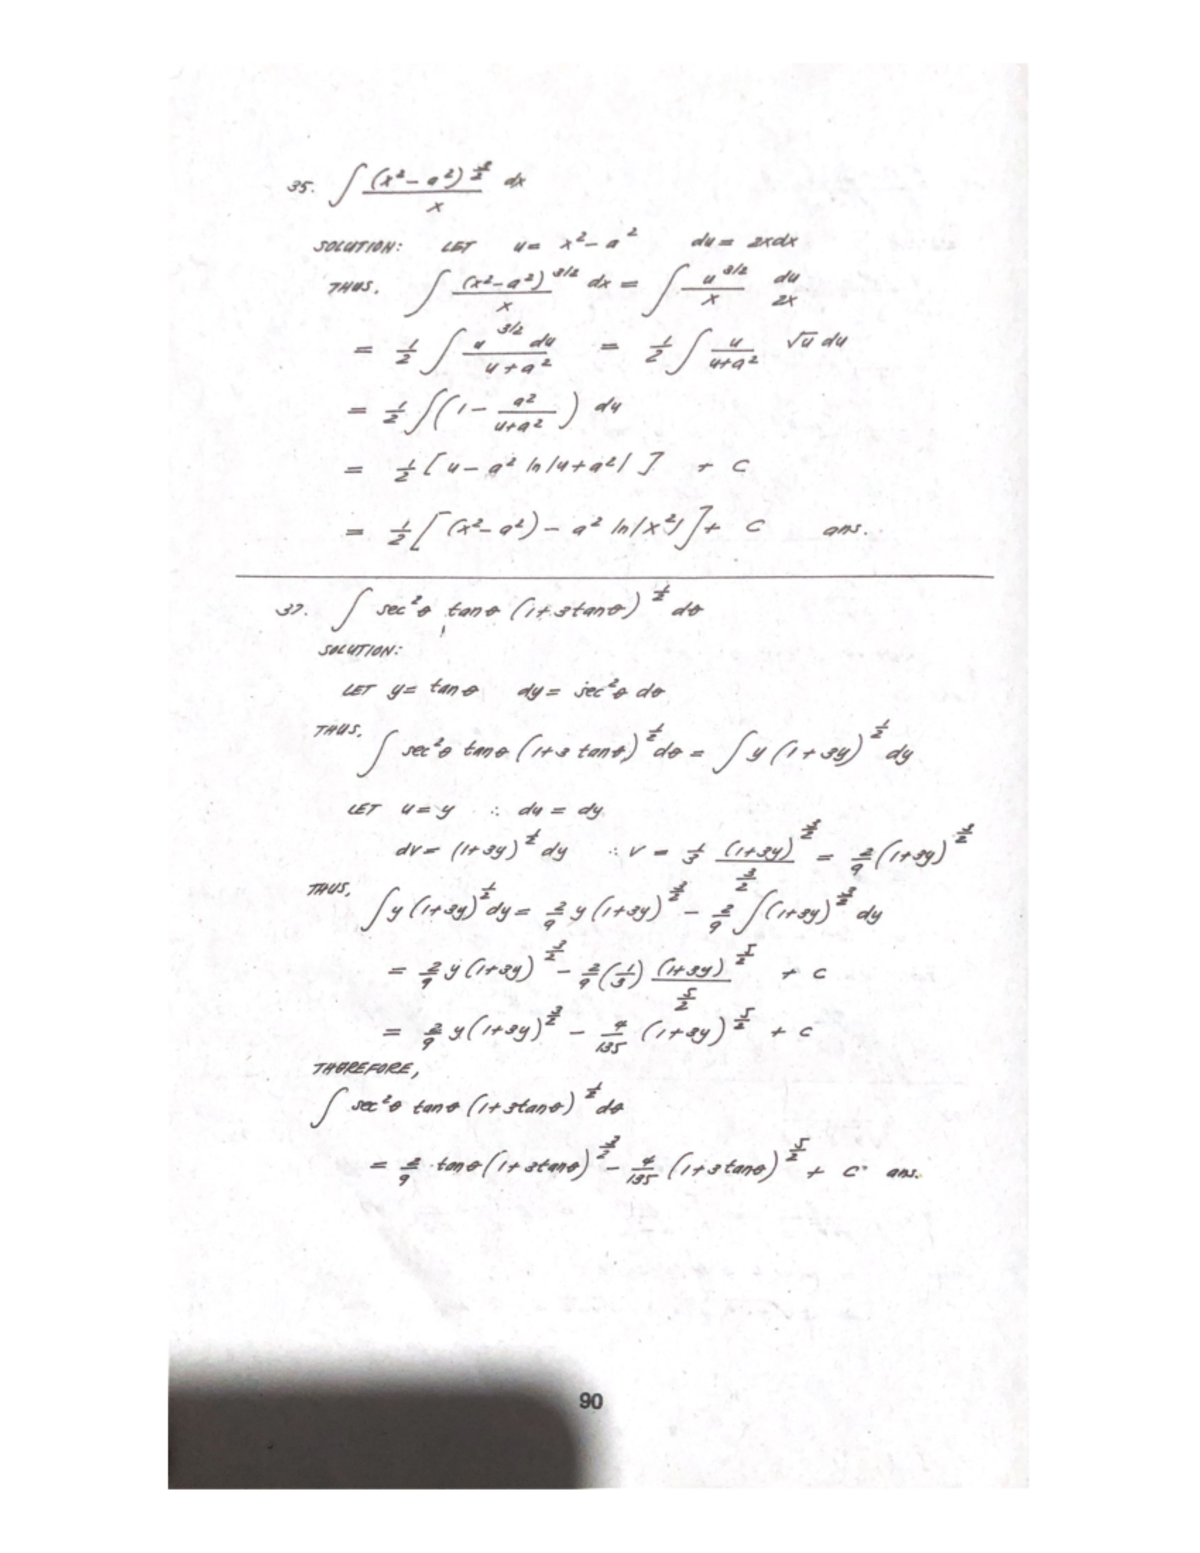 35. ∫ (x² - a²)^(3/2) / x dx
SOLUTION: LET u = x² - a² du = 2xdx
THUS, ∫ (x² - a²)^(3/2) / x dx = ∫ u^(3/2) / x du / 2x
= 1/2 ∫ u^(3/2) du / (u + a²) = 1/2 ∫ u / (u + a²) √u du
= 1/2 ∫ (1 - a² / (u + a²)) du
= 1/2 [u - a² ln|u + a²|] + C
= 1/2 [(x² - a²) - a² ln|x²|] + C ans.
37. ∫ sec²θ tanθ (1 + 3tanθ)^(1/2) dθ
SOLUTION:
LET y = tanθ dy = sec²θ dθ
THUS, ∫ sec²θ tanθ (1 + 3 tanθ)^(1/2) dθ = ∫ y (1 + 3y)^(1/2) dy
LET u = y ∴ du = dy
dv = (1 + 3y)^(1/2) dy ∴ v = 1/3 (1 + 3y)^(3/2) / (3/2) = 2/9 (1 + 3y)^(3/2)
THUS, ∫ y (1 + 3y)^(1/2) dy = 2/9 y (1 + 3y)^(3/2) - 2/9 ∫ (1 + 3y)^(3/2) dy
= 2/9 y (1 + 3y)^(3/2) - 2/9 (1/3) (1 + 3y)^(5/2) / (5/2) + C
= 2/9 y (1 + 3y)^(3/2) - 4/135 (1 + 3y)^(5/2) + C
THEREFORE,
∫ sec²θ tanθ (1 + 3tanθ)^(1/2) dθ
= 2/9 tanθ (1 + 3tanθ)^(3/2) - 4/135 (1 + 3tanθ)^(5/2) + C ans.
90